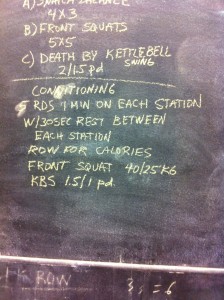 A) SNATCH BALANCE
4X3
B) FRONT SQUATS
5X5
C) DEATH BY KETTLEBELL
SWING
2/1.5 pd
CONDITIONING
5 RDS 1 MIN ON EACH STATION
W/30SEC REST BETWEEN
EACH STATION
ROW FOR CALORIES
FRONT SQUAT 40/25 KG
KBS 1.5/1 pd
1K ROW